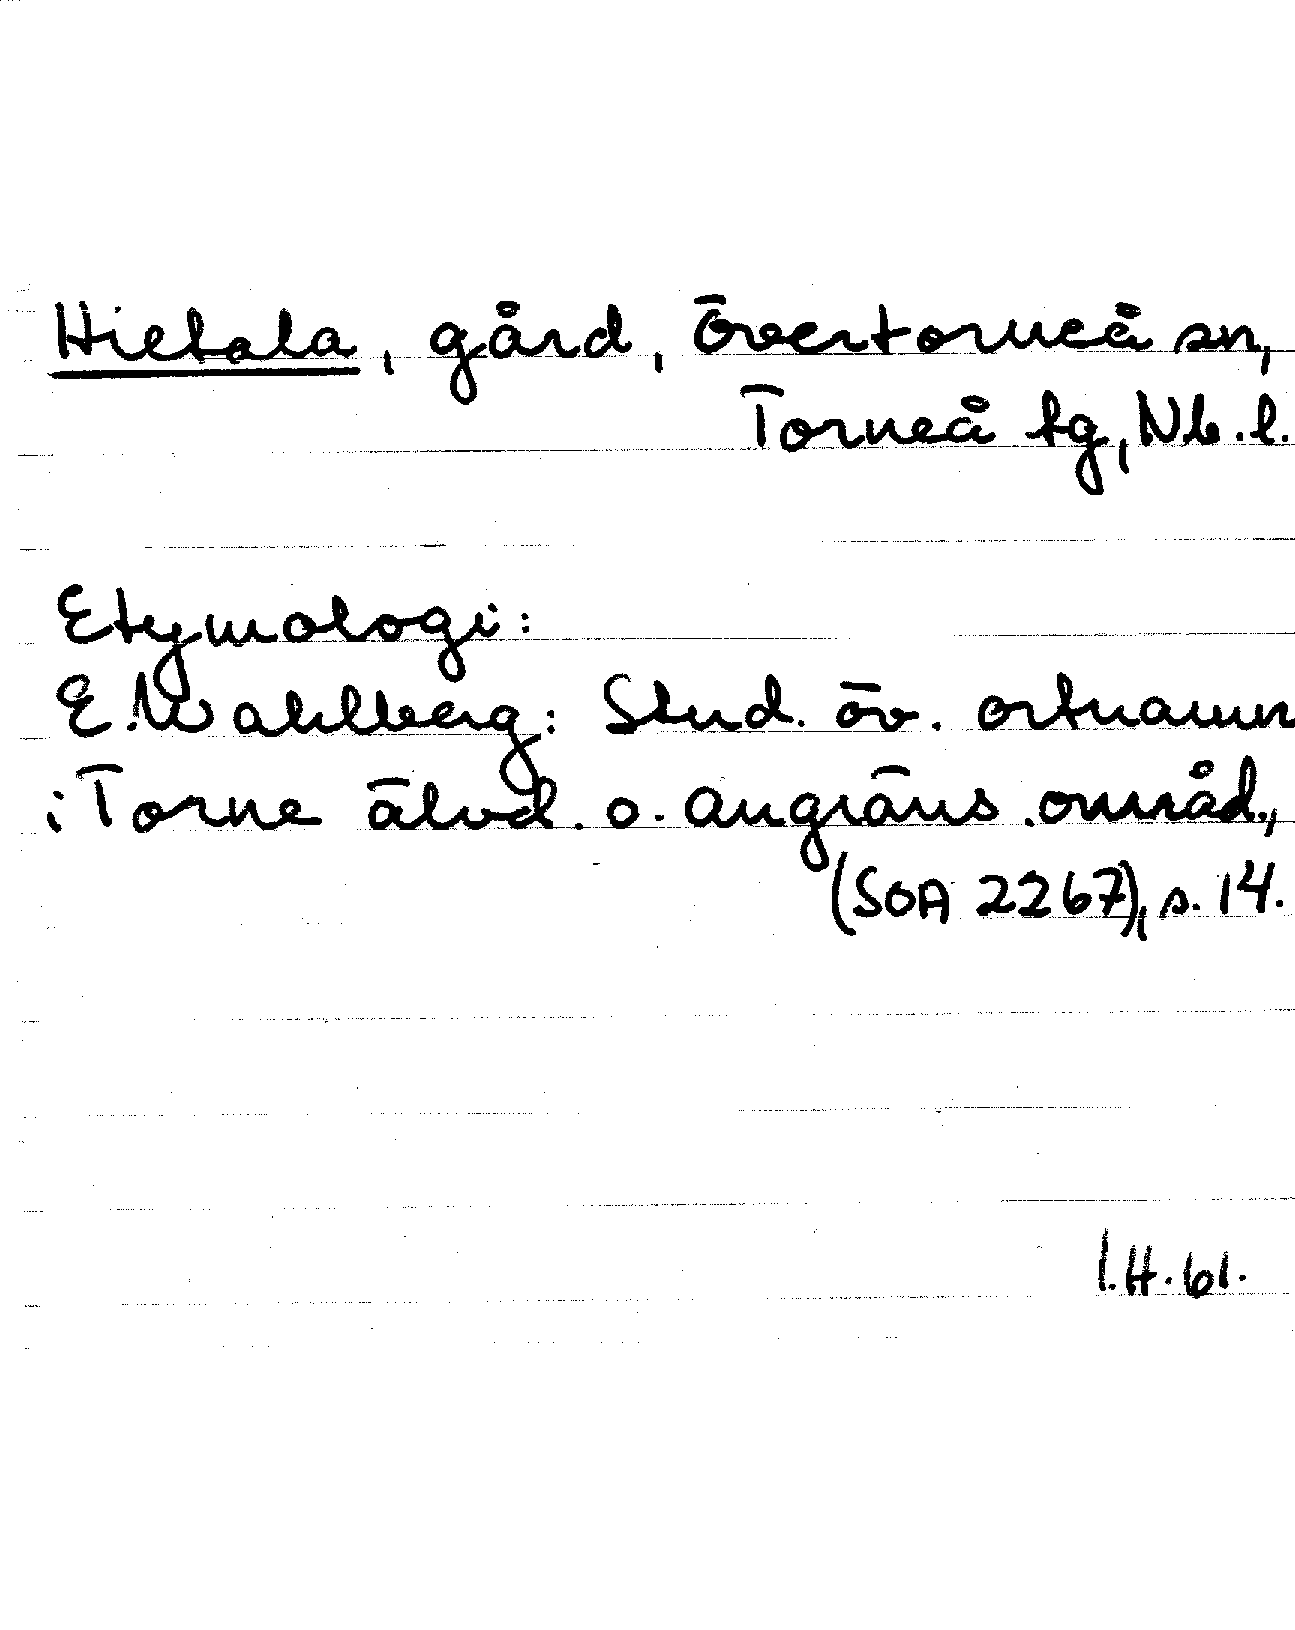 Hietala, gård, Övertorneå sn,
Torneå tg, Nb.l.
Etymologi:
E. Wahlberg: Stud. öv. ortnamn
i Torne älvd. o. angräns. områd.,
(SOA 2267), s. 14.
I.H. 61.